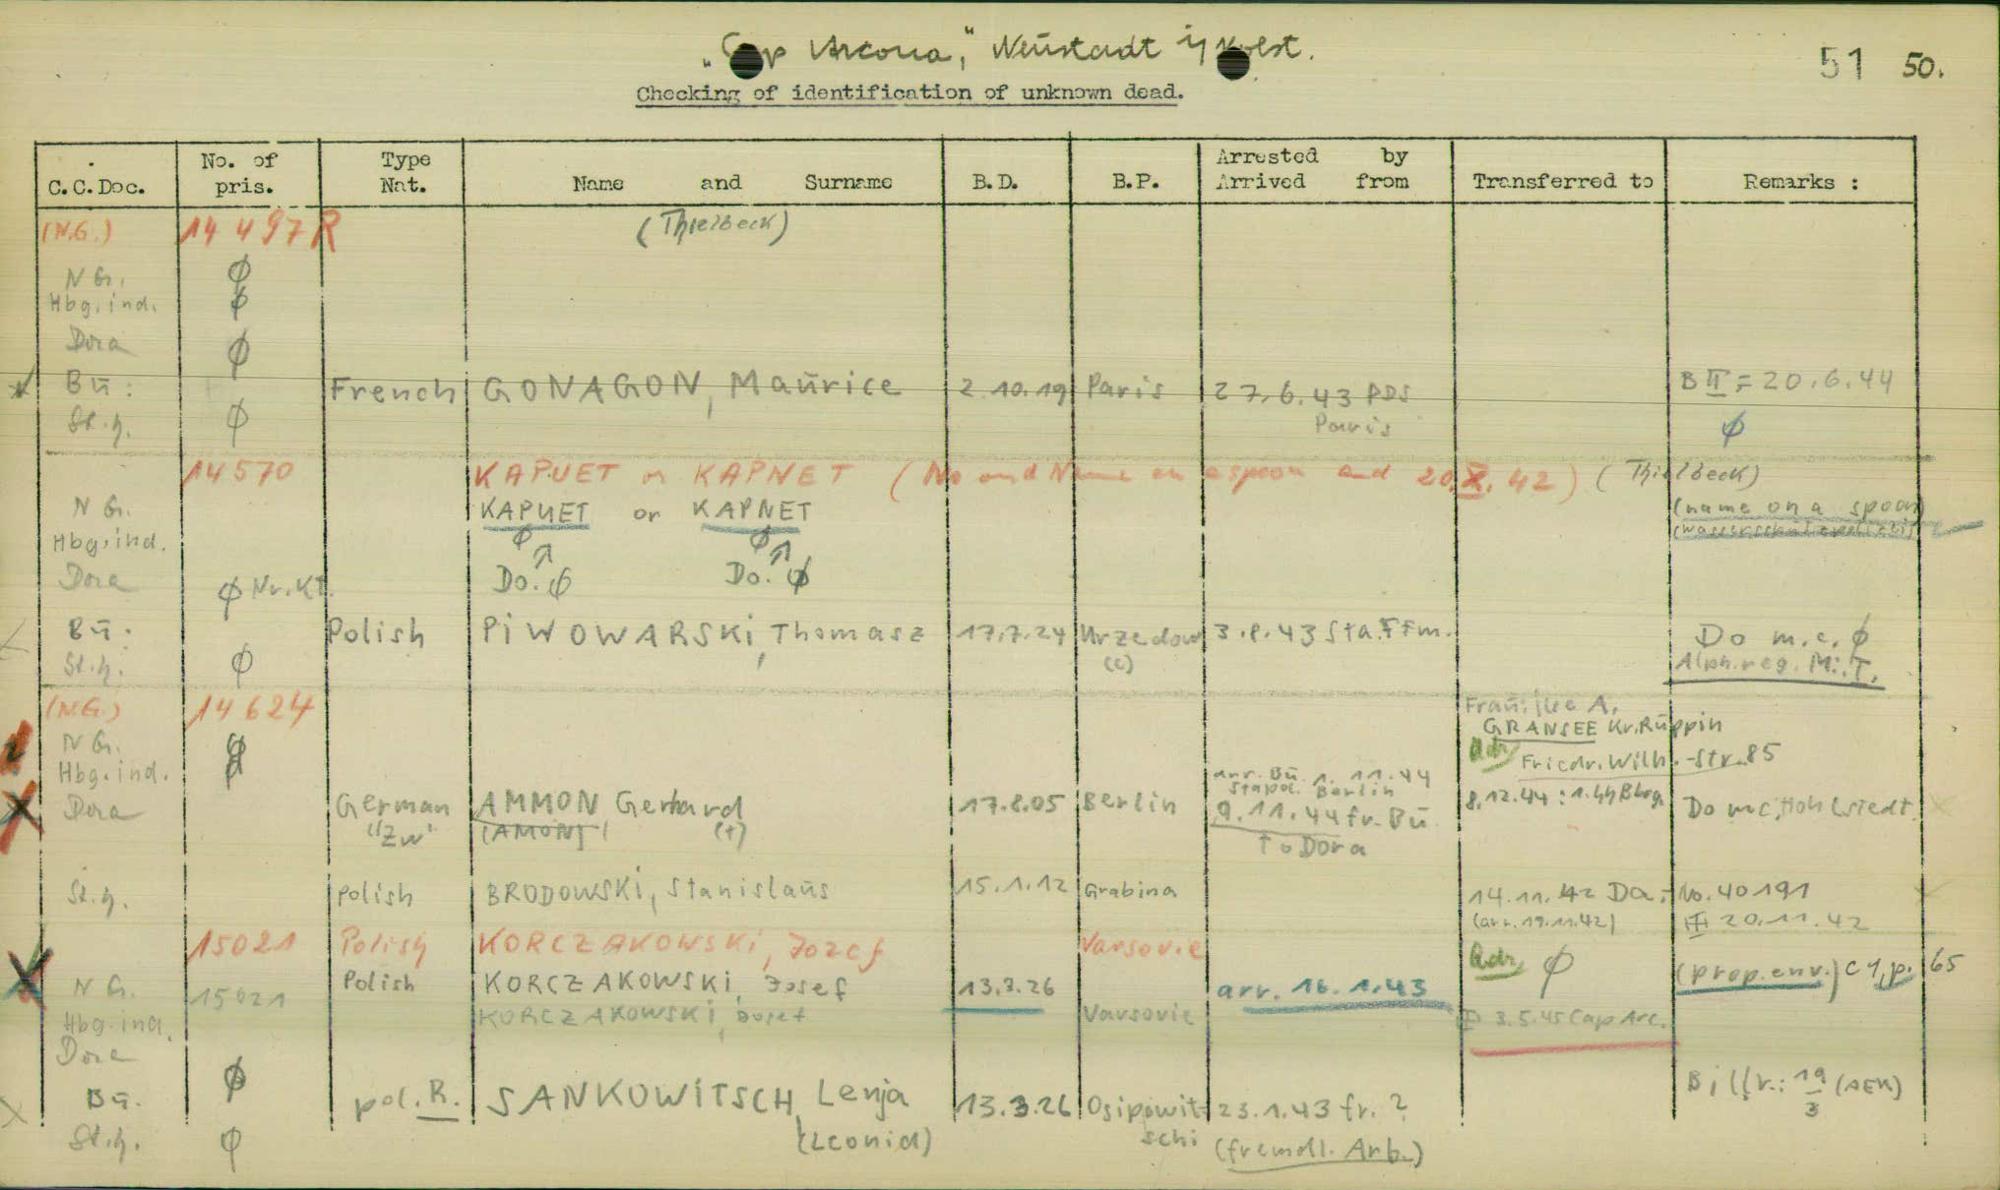 "Cap Arcona", Neustadt i/Holst.
51 50.
Checking of identification of unknown dead.
C.C.Doc. No. of pris. Type Nat. Name and Surname B.D. B.P. Arrested by Arrived from Transferred to Remarks :
(N.G.) 14 497 R (Thielbeck)
N G. ϕ
Hbg. ind. ϕ
Dora ϕ
Bū: French GONAGON, Maūrice 2.10.19 Paris 27.6.43 PDS Paris B II = 20.6.44
St.h. ϕ ϕ
14570 KAPUET or KAPNET (No and Name on a spoon and 20.X.42) (Thielbeck)
N G. KAPUET or KAPNET (name on a spoon)
Hbg. ind. ϕ ϕ
Dora ϕ Nr. Kt. Do. ϕ Do. ϕ
Bū: Polish PIWOWARSKI, Thomasz 17.7.24 Urzedow (c) 3.8.43 Sta. Ffm. Do m.c. ϕ
St.h. ϕ Alph. reg. M.:T.
(N.G.) 14624
GRANSEE Kr. Rūppin
N G. ϕ Adr. Friedr. Wilh.-Str. 85
Hbg. ind. ϕ arr. Bū 1.11.44
Stapol. Berlin
Dora German "Zw" AMMON Gerhard (AMON) (t) 17.8.05 Berlin 9.11.44 fr. Bū to Dora 8.12.44: Do mc, Hohlstedt
St.h. Polish BRODOWSKI, Stanislaūs 15.1.12 Grabina 14.11.42 Da.- No. 40191
(arr. 19.11.42) 20.11.42
15021 Polish KORCZAKOWSKI, Jozef Varsovie
N G. 15021 Polish KORCZAKOWSKI, Josef 13.3.26 arr. 16.1.43 Adr. ϕ (prop. env.) C 1, p. 165
Hbg. ind. KORCZAKOWSKI, Josef Varsovie 3.5.45 Cap Arc.
Dora ϕ
Bū. pol. R. SANKOWITSCH, Lenja 13.3.26 Osipowitschi 23.1.43 fr. ? 19/3 (AEK)
St.h. ϕ (Leonid) (fremdl. Arb.)